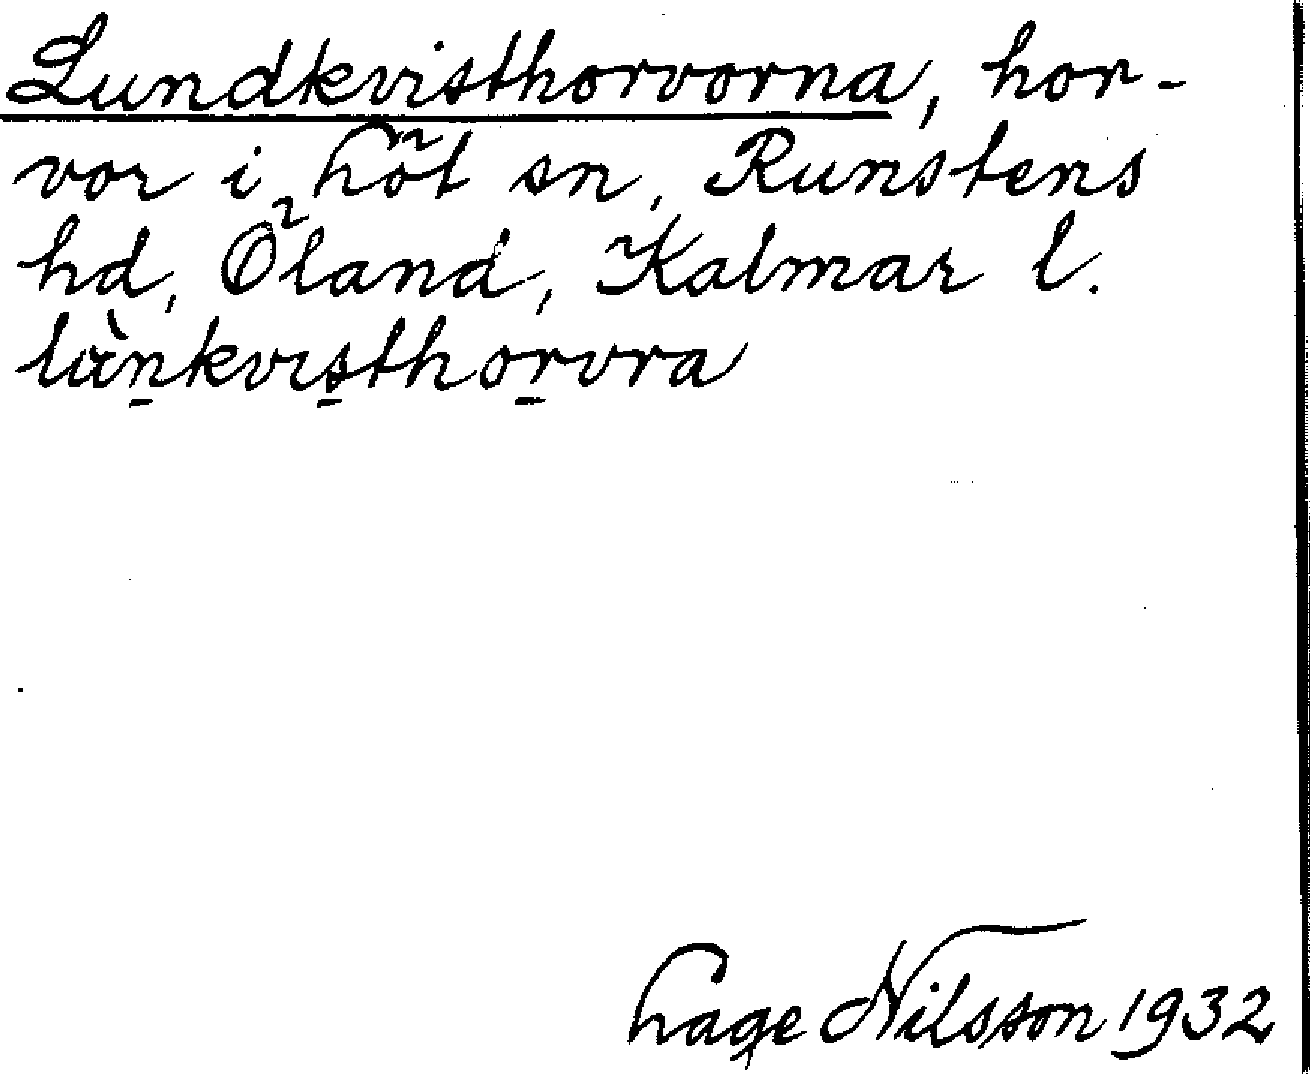 Lundkvisthorvorna, hor-
vor i Löt sn, Runstens
hd, Öland, Kalmar l.
lùn̠kvɪs̠thor̠vra
Nilsson 1932